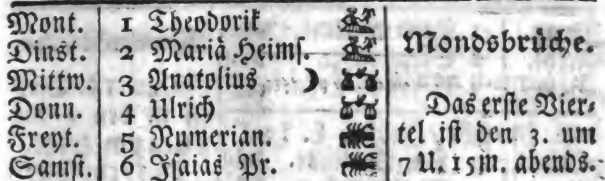 Mont. 1 Theodorik
Dinst. 2 Mariä Heims.
Mittw. 3 Anatolius
Donn. 4 Ulrich
Freyt. 5 Numerian.
Samst. 6 Isaias Pr.
Mondsbrüche.
Das erste Vier-
tel ist den 3. um
7 U. 15m. abends.